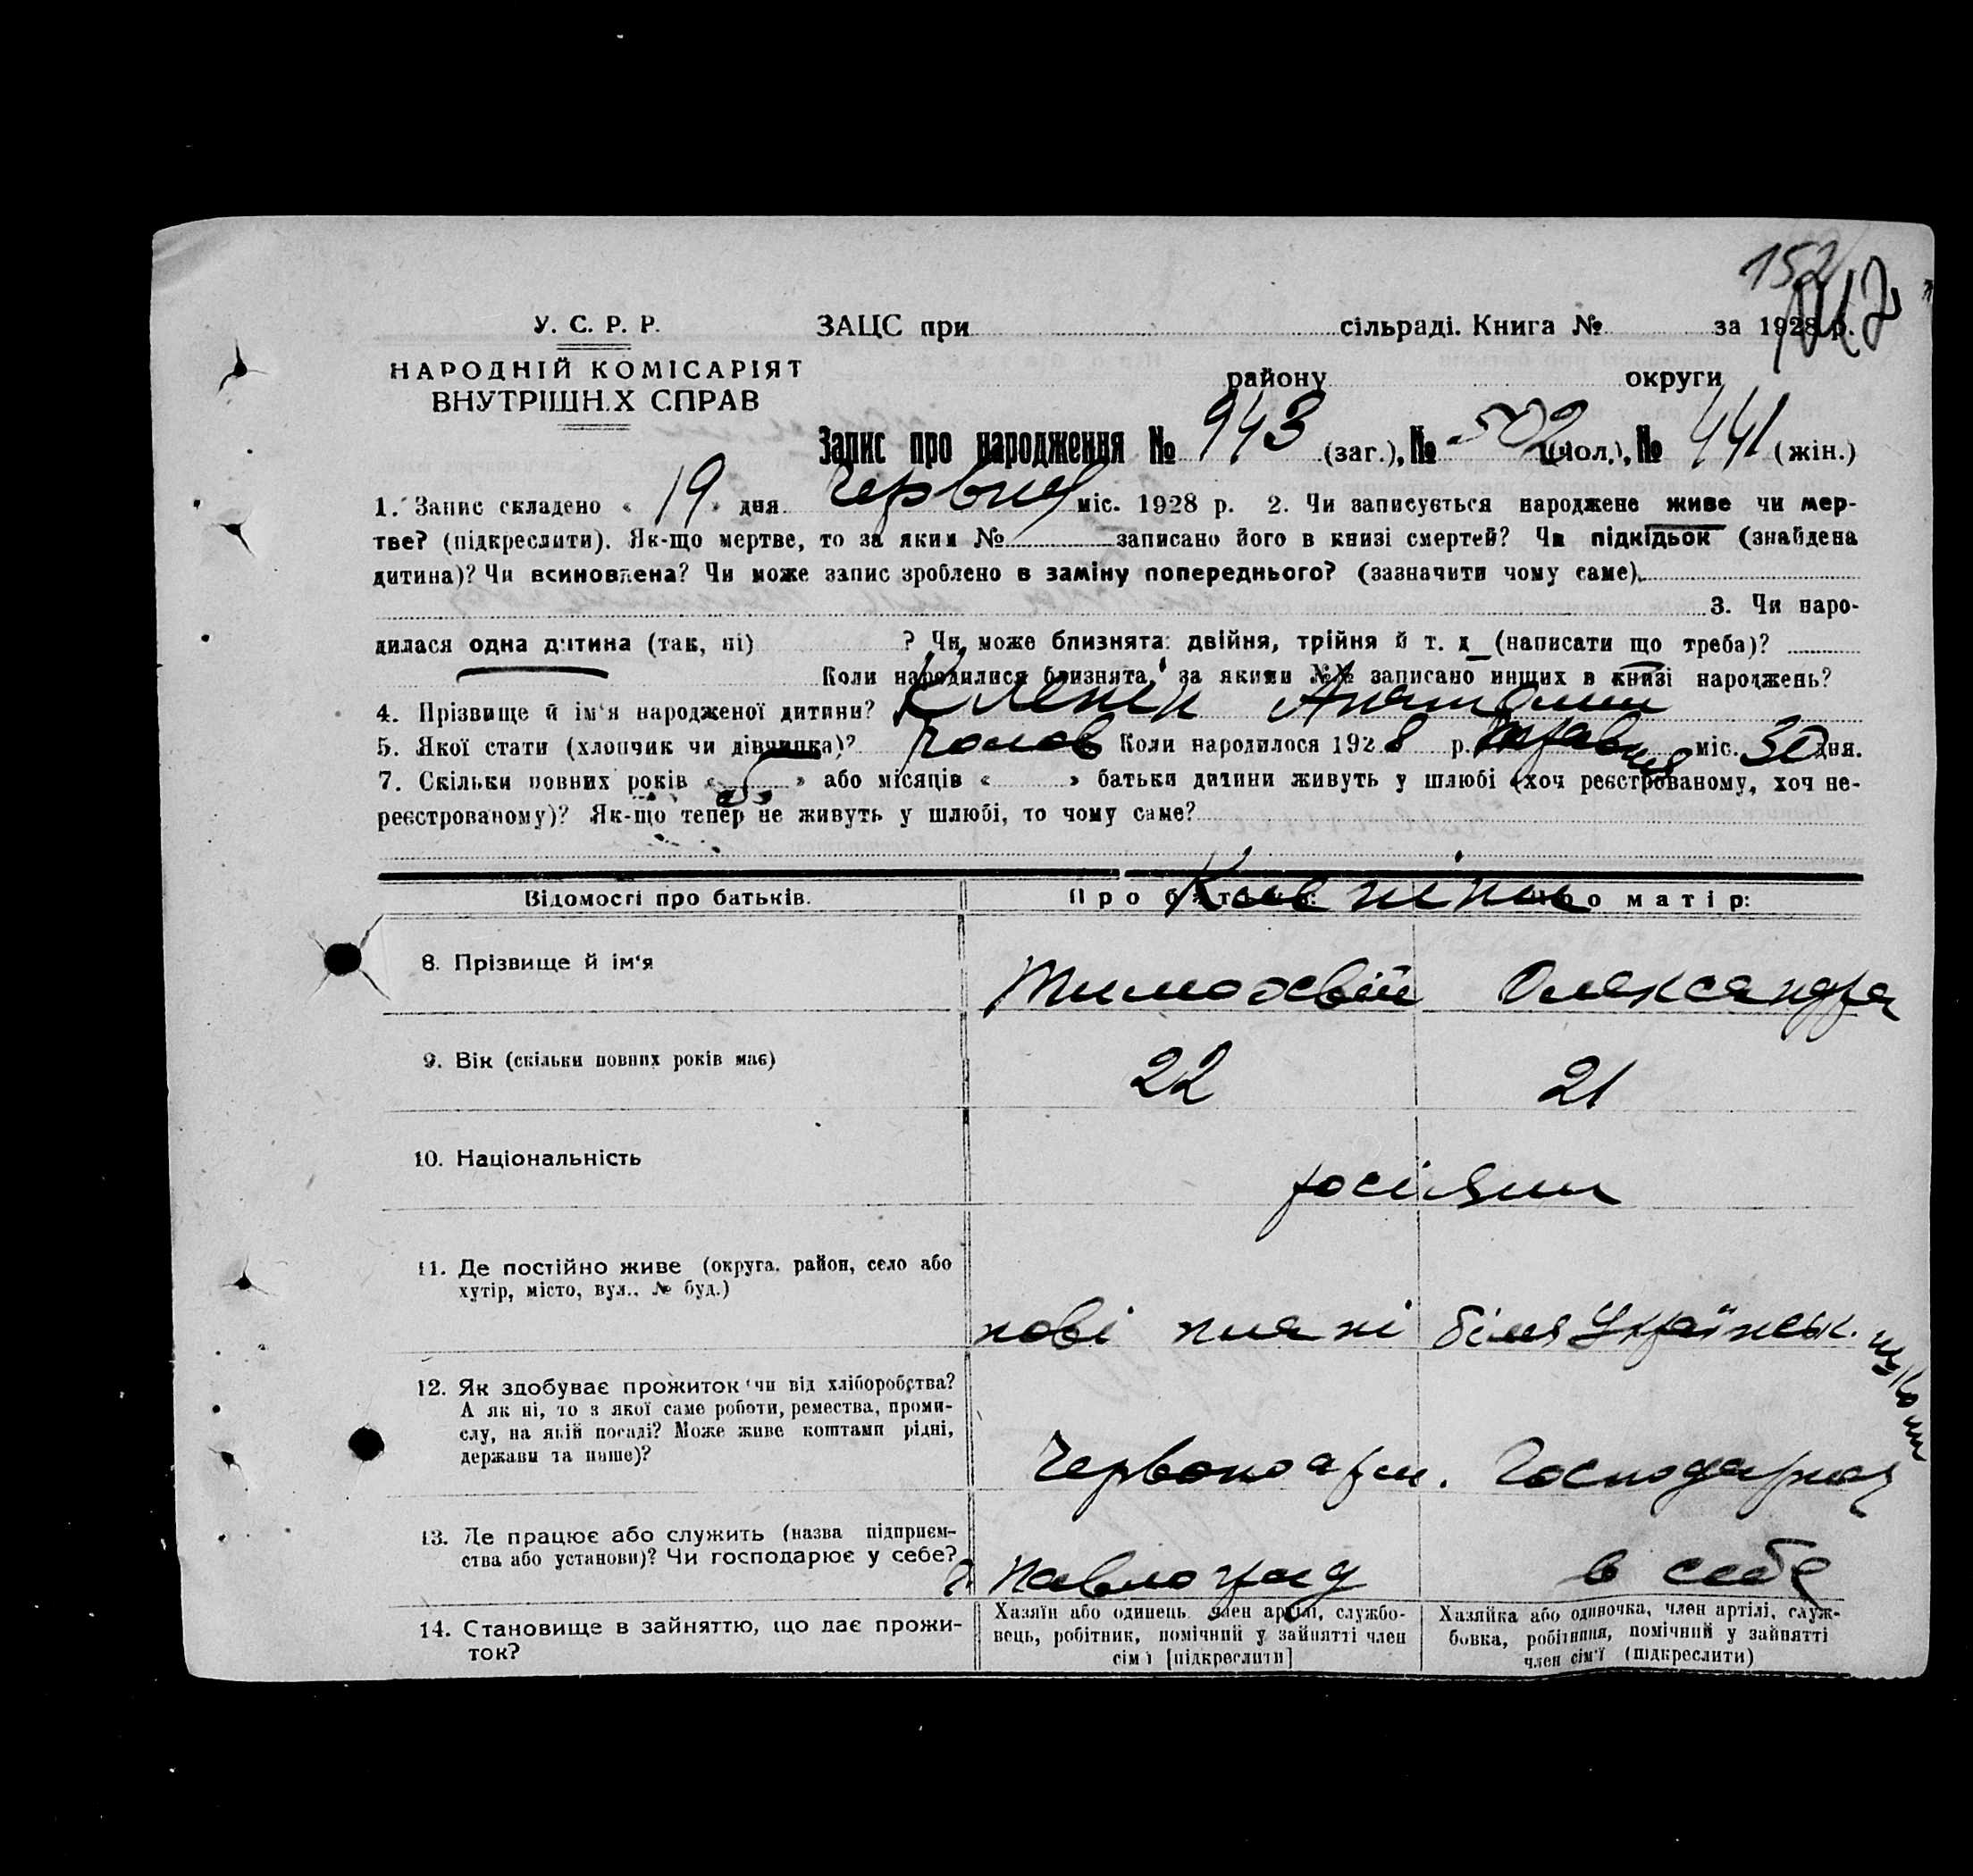 152
У. С. Р. Р.
ЗАЦС при сільраді. Книга № за 1928 р.
НАРОДНІЙ КОМІСАРІЯТ
ВНУТРІШН.Х СПРАВ
району округи
Запис про народження № 943 (заг.), № 502 (чол.), № 441 (жін.)
1. Запис складено « 19 » дня Червня міс. 1928 р. 2. Чи записується народжене живе чи мер-
тве? (підкреслити). Як-що мертве, то за яким № записано його в книзі смертей? Чи підкідьок (знайдена
дитина)? Чи всиновлена? Чи може запис зроблено в заміну попереднього? (зазначити чому саме)
3. Чи наро-
дилася одна дитина (так, ні) ? Чи може близнята: двійня, трійня й т. д (написати що треба)?
Коли народилися близнята, за якими №№ записано инших в книзі народжень?
4. Прізвище й ім'я народженої дитини? Анатолий
5. Якої стати (хлопчик чи дівчинка)? Чолов Коли народилося 1928 р. травня міс. 30 дня.
7. Скільки повних років « » або місяців « » батьки дитини живуть у шлюбі (хоч реєстрованому, хоч не-
реєстрованому)? Як-що тепер не живуть у шлюбі, то чому саме?
Відомості про батьків. Про батька: Про матір:
8. Прізвище й ім'я
Тимохвій Олександра
9. Вік (скільки повних років має)
22 21
10. Національність
росіяни
11. Де постійно живе (округа, район, село або
хутір, місто, вул., № буд.)
нові пляні біля Українськ.
12. Як здобуває прожиток чи від хліборобства?
А як ні, то з якої саме роботи, ремества, проми-
слу, на якій посаді? Може живе коштами рідні,
держави та инше)?
Червоноарм. Господарює
13. Де працює або служить (назва підприєм-
ства або установи)? Чи господарює у себе?
Павлоград в себе
14. Становище в зайняттю, що дає прожи-
ток?
Хазяїн або одинець, член артілі, службо-
вець, робітник, помічний у зайнятті член
сім'ї [підкреслити]
Хазяйка або одиночка, член артілі, служ-
бовка, робітниця, помічний у зайнятті
член сім'ї (підкреслити)